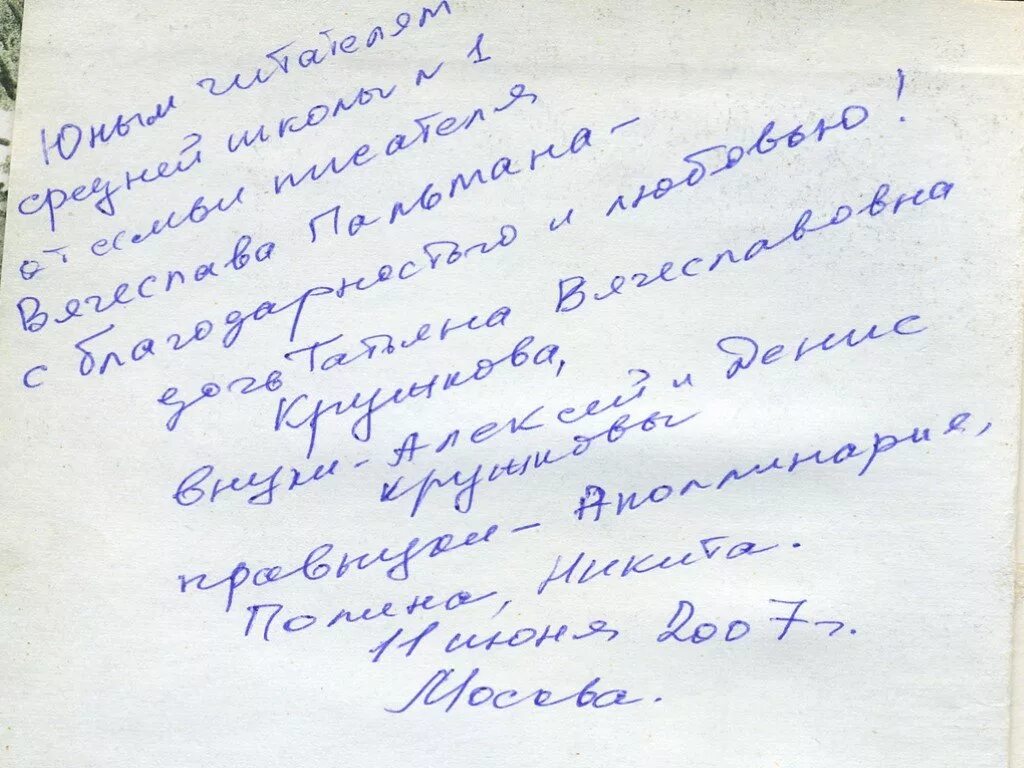 Юным читателям
средней школы № 1
от семьи писателя
Вячеслава Пальмана -
с благодарностью и любовью!
дочь Татьяна Вячеславовна
Крушкова,
внуки - Алексей и Денис
Крушковы
правнуки - Аполлинария,
Полина, Никита.
11 июня 2007 г.
Москва.